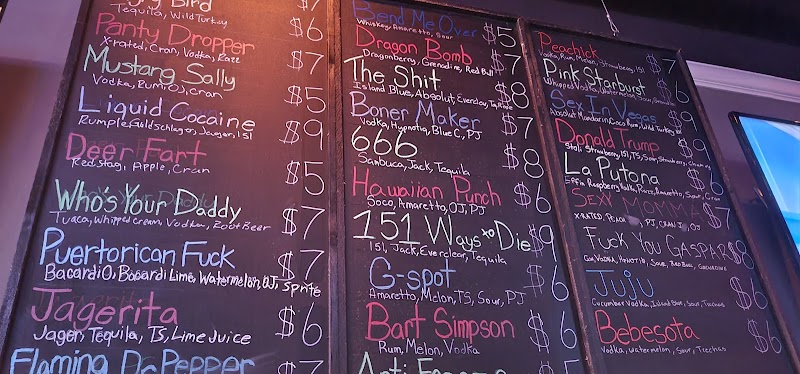 Bird $7
Tequila, Wild Turkey
Panty Dropper $6
X-rated, Cran, Vodka, Razz
Mustang Sally $5
Vodka, Rum, OJ, Cran
Liquid Cocaine $9
Rumple, Goldschlager, Jager, 151
Deer Fart $5
Redstag, Apple, Cran
Who's Your Daddy $7
Tuaca, Whipped Cream, Vodka, Root Beer
Puertorican Fuck $7
Bacardi O, Bacardi Lime, Watermelon, OJ, Sprite
Jagerita $6
Jager, Tequila, TS, Lime Juice
Flaming Dr Pepper $7
Bend Me Over $5
Whiskey, Amaretto, Sour
Dragon Bomb $7
Dragonberry, Grenadine, Red Bull
The Shit $8
Island Blue, Absolut, Everclear,
Boner Maker $7
Vodka, Hypnotiq, Blue C, PJ
666 $8
Sambuca, Jack, Tequila
Hawaiian Punch $6
Soco, Amaretto, OJ, PJ
151 Ways to Die $9
151, Jack, Everclear, Tequila
G-spot $6
Amaretto, Melon, TS, Sour, PJ
Bart Simpson $6
Rum, Melon, Vodka
Anti
Peachick $7
Vodka, Rum, Melon, Strawberry, 151
Pink Starburst $6
Whipped Vodka, Watermelon, Sour,
Sex In Vegas $9
Absolut Mandarin, Coco Rum, Wild Turkey, 151
Donald Trump $9
Stoli Strawberry, 151, TS, Sour, Strawberry,
La Putona $7
Effin Raspberry Vodka, Razz, Amaretto, Sour, Cran
Sexy Momma $7
X-Rated, Peach, PJ, Cran, OJ
Fuck You Gaspar $8
Vodka, Sour, Red Bull, Grenadine
Juju $6
Cucumber Vodka, Island Blue, Sour, Trechas
Bebesota $6
Vodka, Watermelon, Sour, Trechas